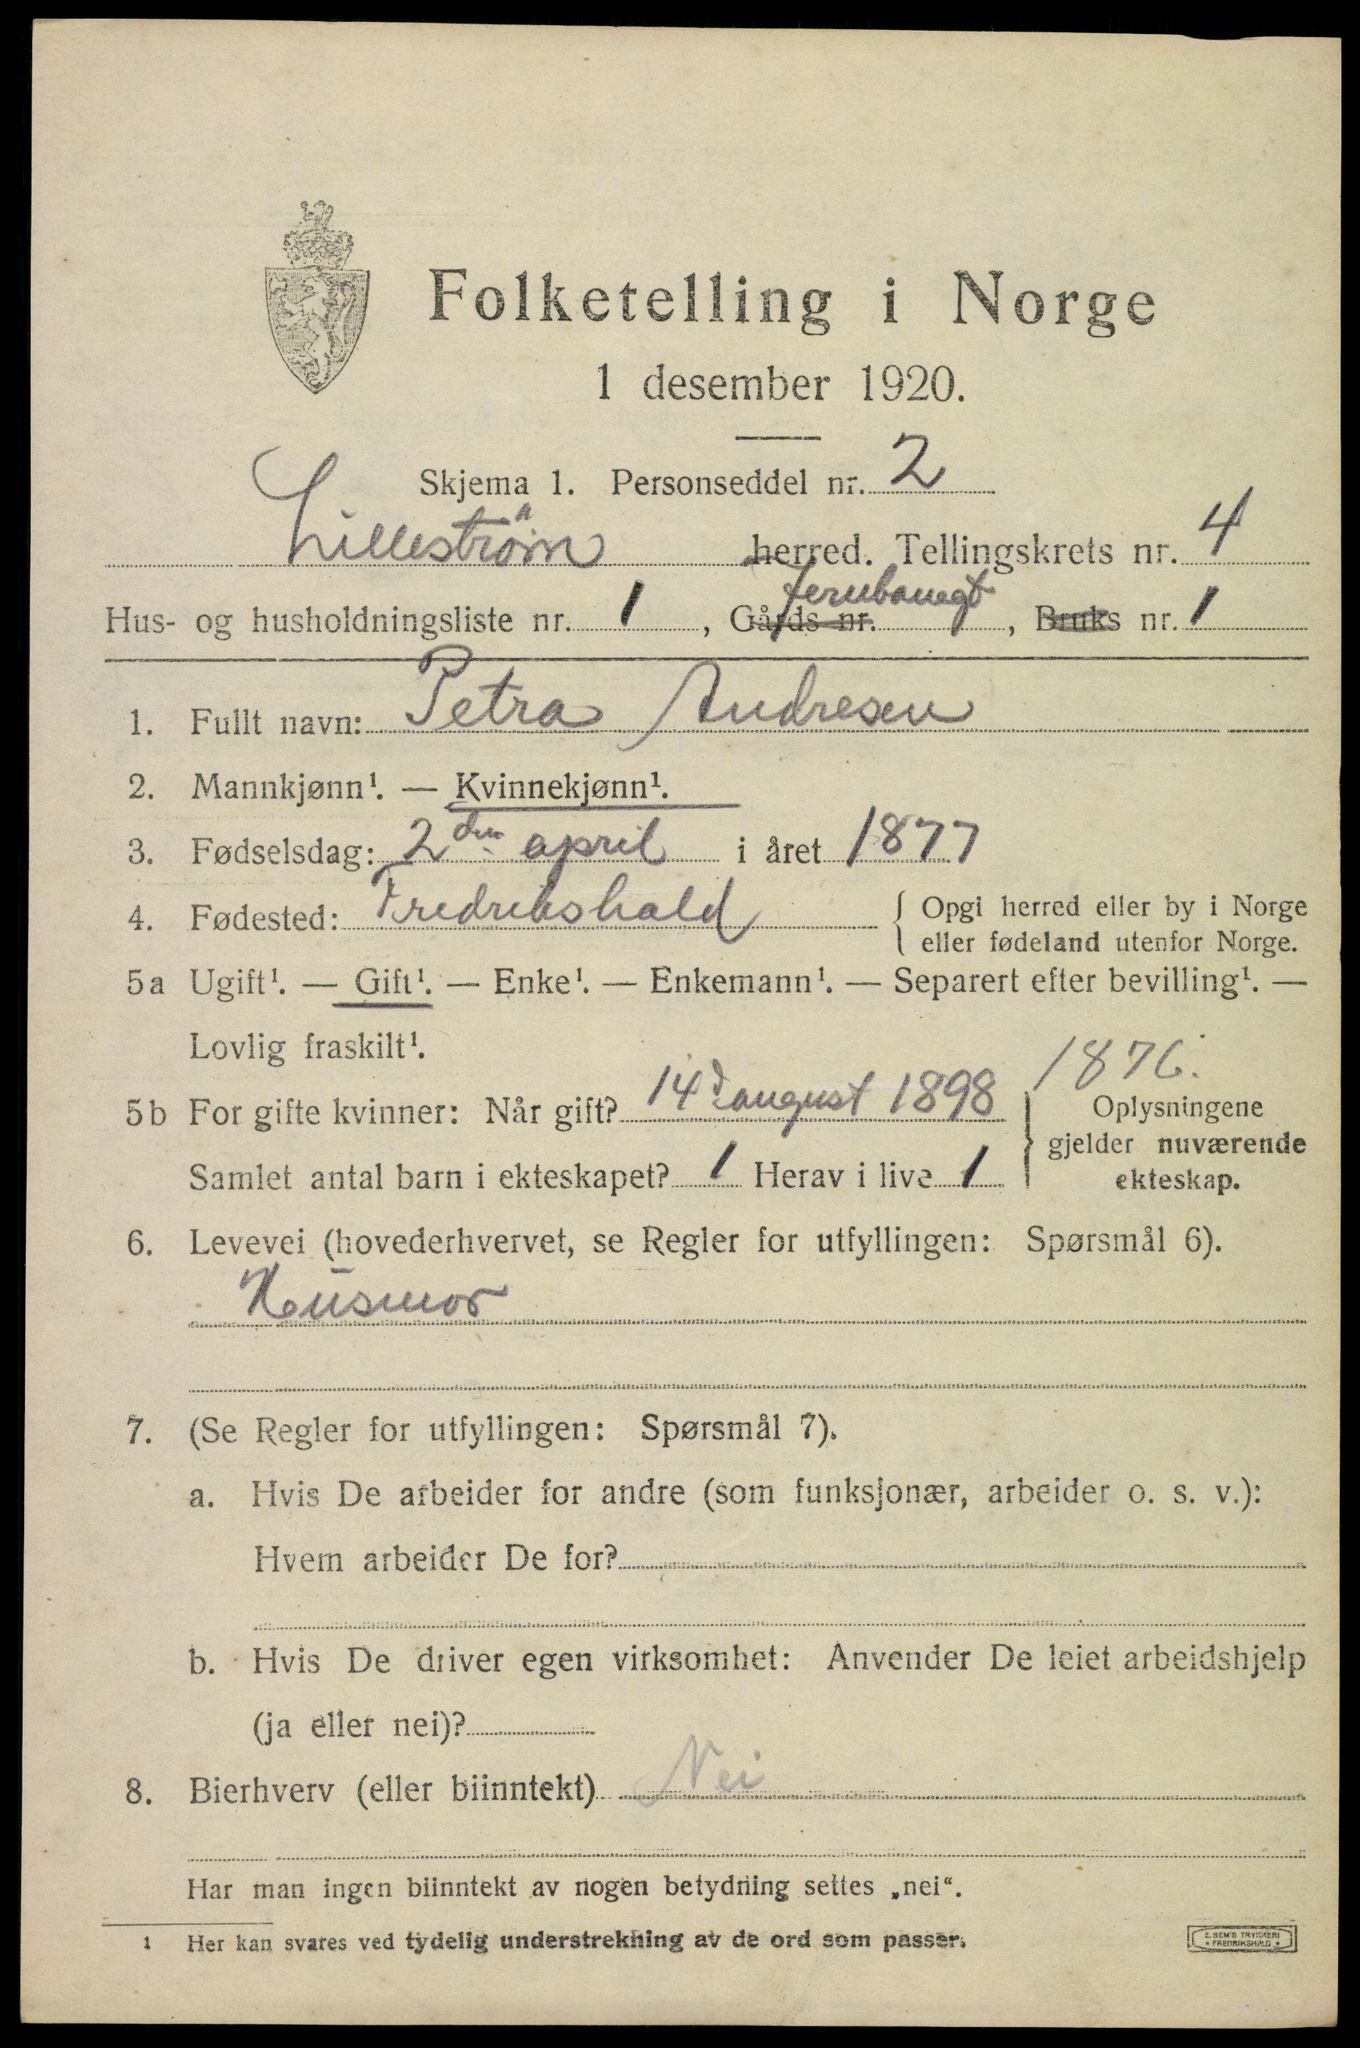 Folketelling i Norge
1 desember 1920.
Skjema 1. Personseddel nr. 2
Lilleström herred. Tellingskrets nr. 4
Jernbanegt
Hus- og husholdningsliste nr. 1, Gårds nr. , Bruks nr. 1
1. Fullt navn: Petra Andresen
2. Mannkjønn¹. — Kvinnekjønn¹.
3. Fødselsdag: 2den april i året 1877
4. Fødested: Fredrikshald { Opgi herred eller by i Norge
eller fødeland utenfor Norge.
5a Ugift¹. — Gift¹. — Enke¹. — Enkemann¹. — Separert efter bevilling¹. —
Lovlig fraskilt¹.
1876.
5b For gifte kvinner: Når gift? 14 august 1898 } Oplysningene
gjelder nuværende
Samlet antal barn i ekteskapet? 1 Herav i live 1 ekteskap.
6. Levevei (hovederhvervet, se Regler for utfyllingen: Spørsmål 6).
Husmor
7. (Se Regler for utfyllingen: Spørsmål 7).
a. Hvis De arbeider for andre (som funksjonær, arbeider o. s. v.):
Hvem arbeider De for?
b. Hvis De driver egen virksomhet: Anvender De leiet arbeidshjelp
(ja eller nei)?
8. Bierhverv (eller biinntekt) Nei
Har man ingen biinntekt av nogen betydning settes „nei“.
1 Her kan svares ved tydelig understrekning av de ord som passer.
E. SEM'S TRYKKERI
* FREDRIKSHALD *